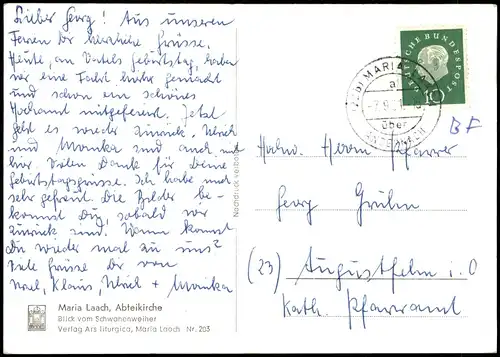 Lieber Georg! Aus unseren
Ferien Dir herzliche Grüsse.
Heute, an Vatels Geburtstag, haben
wir eine Fahrt hierher gemacht
und schon ein schönes
Hochamt mitgefeiert. Jetzt
geht es wieder zurück. Ulrich
und Monika sind auch mit
hier. Vielen Dank für Deine
Geburtstagsgrüsse. Ich habe mich
sehr gefreut. Die Bilder be-
kommst Du, sobald wir
zurück sind. Wann kommst
Du wieder mal zu uns?
Viele Grüsse Dir von
Klaus, Ulrich + Monika
Maria Laach, Abteikirche
Blick vom Schwanenweiher
Verlag Ars liturgica, Maria Laach Nr. 203
Nachdruck verboten
DEUTSCHE BUNDESPOST
10
MARIA
über
BF
Hochw. Herrn Pfarrer
Georg
(23) Augustfehn i. O
Kath. Pfarramt